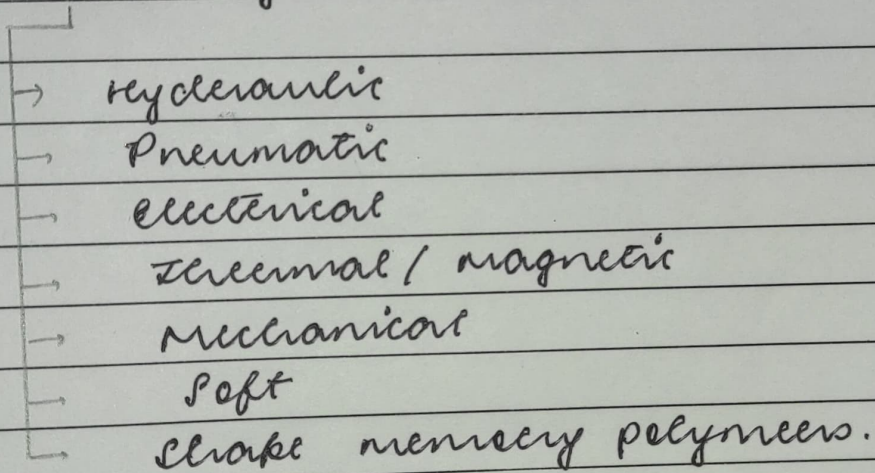 Hyderaulic
Pneumatic
electrical
Thermal / magnetic
Mechanical
Soft
Shape memory polymers.